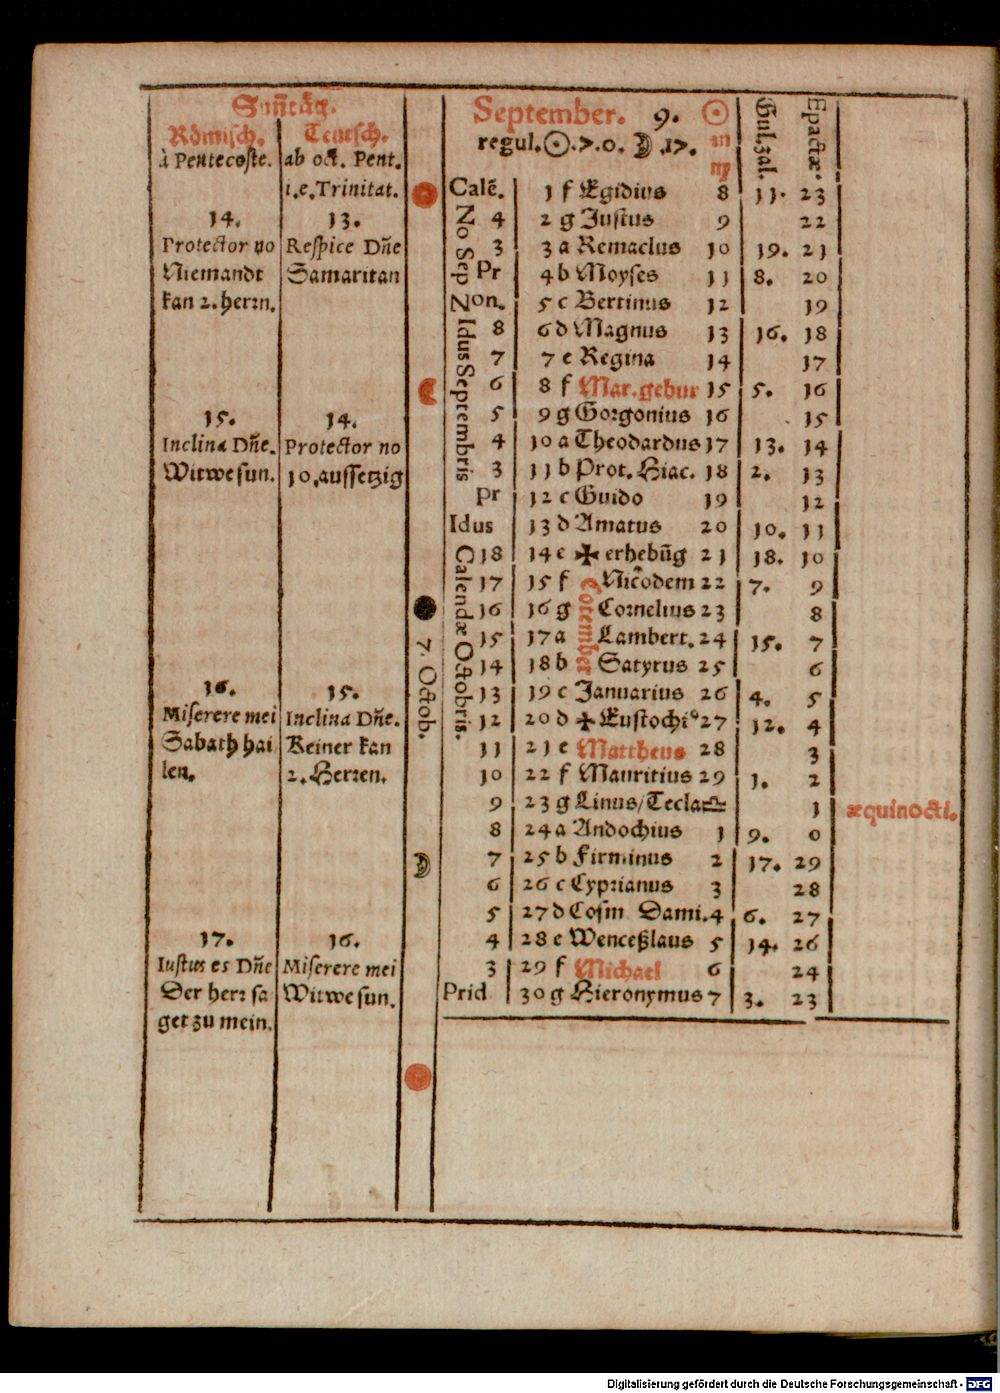 Sun̄täg.
Römisch. Teutsch.
à Pentecoste. ab oct. Pent.
i.e. Trinitat.
14. 13.
Protector no Respice Dñe
Niemandt Samaritan
kan 2. herrn.
15. 14.
Inclina Dñe. Protector no
Witwe sun. 10. aussetzig
16. 15.
Miserere mei Inclina Dñe.
Sabath hai Keiner kan
len. 2. Herren.
17. 16.
Iustus es Dñe Miserere mei
Der herr sa Witwe sun.
get zu mein.
7. Octob.
September. 9. ☉
regul. ☉. 7. 0. ☽ .17. ♍
Gul. zal.
Epactæ.
No Sep
Idus Septembris
Calendæ Octobris.
Calē. 1 f Egidius 8 11. 23
4 2 g Justus 9 22
3 3 a Remaclus 10 19. 21
Pr 4 b Moyses 11 8. 20
Non. 5 c Bertinus 12 19
8 6 d Magnus 13 16. 18
7 7 e Regina 14 17
6 8 f Mar. gebur 15 5. 16
5 9 g Gorgonius 16 15
4 10 a Theodardus 17 13. 14
3 11 b Prot. Hiac. 18 2. 13
Pr 12 c Guido 19 12
Idus 13 d Amatus 20 10. 11
18 14 e ✠ erhebūg 21 18. 10
17 15 f Nicodem 22 7. 9
16 16 g Cornelius 23 8
15 17 a Lambert. 24 15. 7
14 18 b Satyrus 25 6
13 19 c Januarius 26 4. 5
12 20 d ✠ Eustochi⁹ 27 12. 4
11 21 e Mattheus 28 3
10 22 f Mauritius 29 1. 2
9 23 g Linus/Tecla ♎ 1 æquinocti.
8 24 a Andochius 1 9. 0
7 25 b Firminus 2 17. 29
6 26 c Cyprianus 3 28
5 27 d Cosm Dami. 4 6. 27
4 28 e Wenceßlaus 5 14. 26
3 29 f Michael 6 24
Prid 30 g Hieronymus 7 3. 23
Digitalisierung gefördert durch die Deutsche Forschungsgemeinschaft - DFG